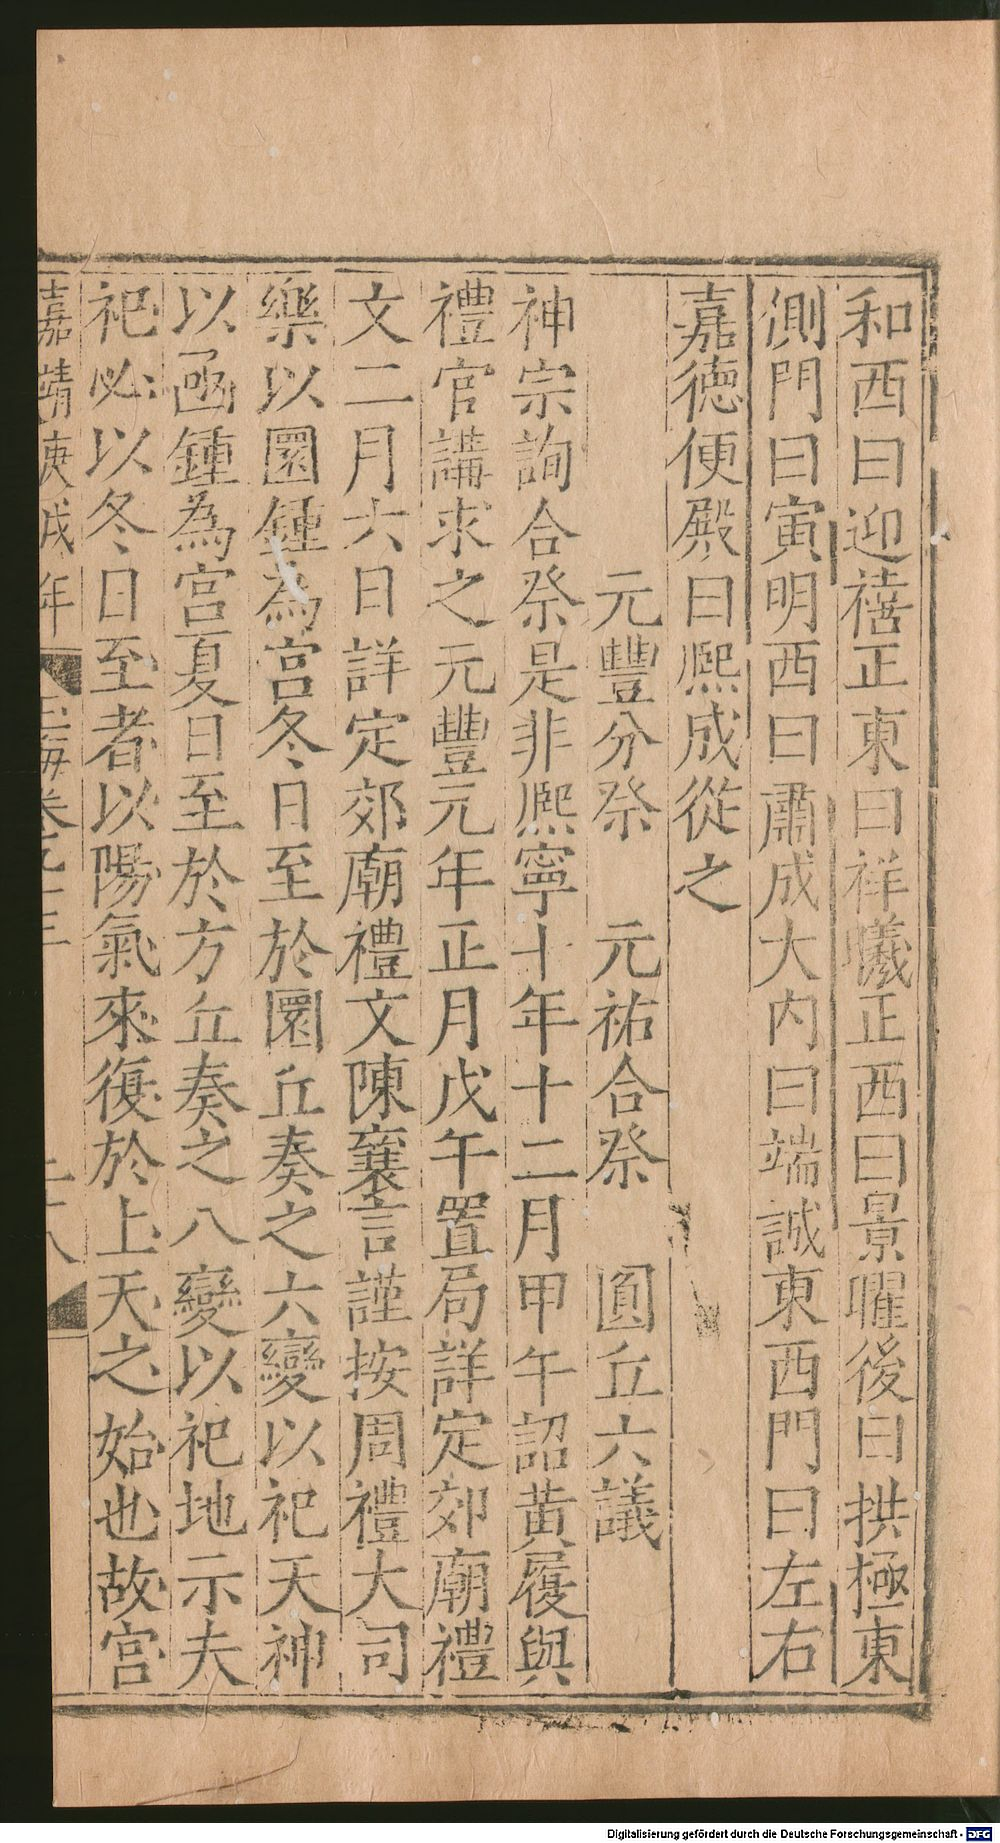 和西曰迎禧正東曰祥曦正西曰景曜後曰拱極東
側門曰寅明西曰肅成大内曰端誠東西門曰左右
嘉德便殿曰熈成從之
元豐分祭 元祐合祭 圓丘六議
神宗詢合祭是非熈寧十年十二月甲午詔黃履與
禮官講求之元豐元年正月戊午置局詳定郊廟禮
文二月六日詳定郊廟禮文陳襄言謹按周禮大司
樂以圜鍾為宮冬日至於圜丘奏之六變以祀天神
以函鍾為宮夏日至於方丘奏之八變以祀地示夫
祀必以冬日至者以陽氣來復於上天之始也故宮
嘉靖庚戌年 玉海卷九十三 二十八
Digitalisierung gefördert durch die Deutsche Forschungsgemeinschaft - DFG